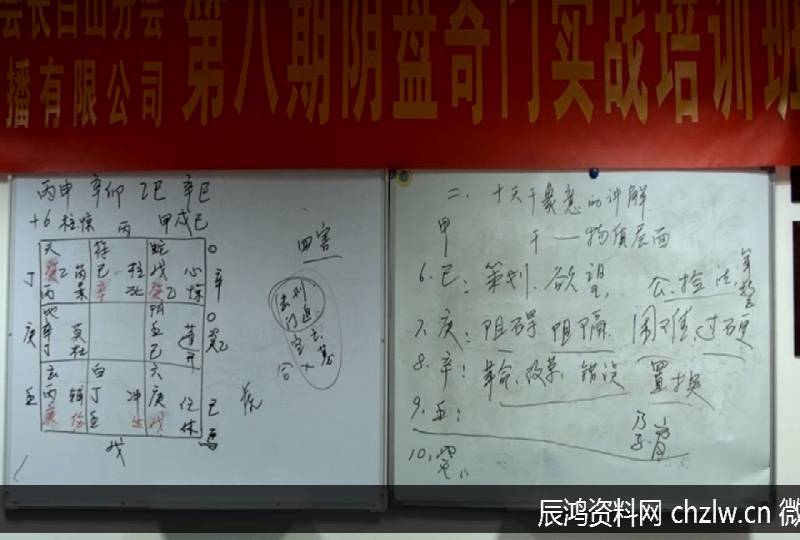 会长白山分会
播有限公司
第八期阴盘奇门实战培训班
丙申 辛卯 乙巳 辛巳
+6 柱惊 丙 甲戌己
天 符 蛇
癸乙 芮 己 柱 戊 心
丙 景 辛 死 癸乙 惊
丁 辛
庚 地 阴
辛 英 壬 蓬
丁 杜 己 开
玄 白 六
壬 丙 辅 丁 冲 庚 任 己
庚 伤 壬 生 戊 休 马
戊
四害
击刑
门迫
空亡
二、十天干象意的讲解
甲 干——物质层面
6.己:策划、欲望
7.庚:阻碍 阻隔 困难、过硬
8.辛:革命、改革、错误 置换
9.壬:
10.癸
辰鸿资料网 chzlw.cn 微